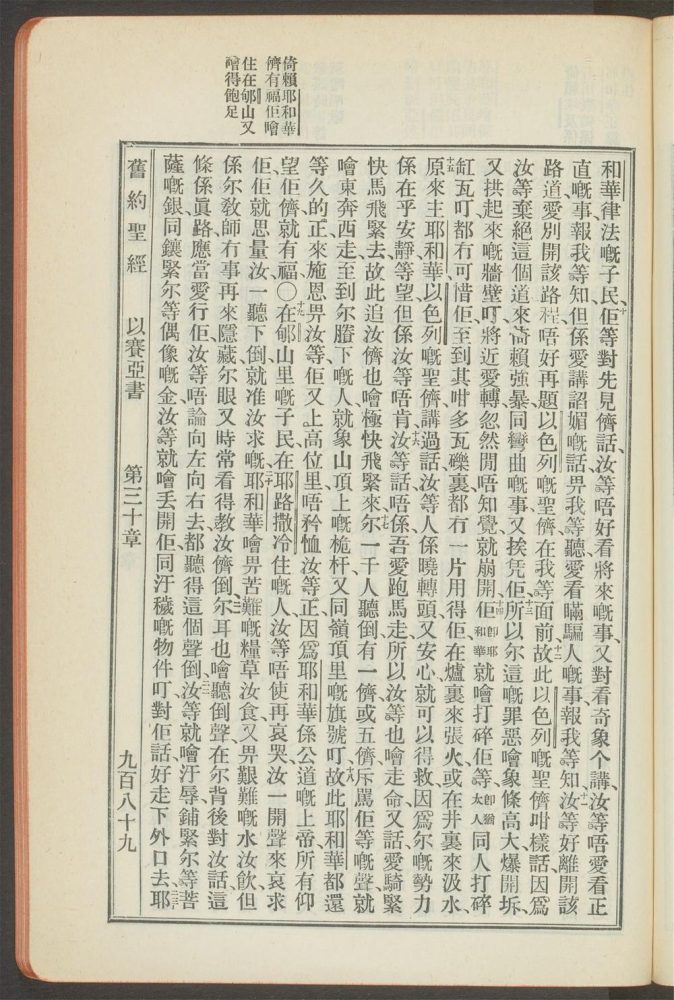 倚賴耶和華
儕有福佢噲
住在郇山又
噲得飽足
和華律法嘅子民、十佢等對先見儕話、汝等唔好看將來嘅事、又對看奇象个講、汝等唔愛看正
直嘅事報我等知、但係愛講諂媚嘅話畀我等聽、愛看瞞騙人嘅事、報我等知、十一汝等好離開該
路道、愛別開該路程、唔好再題以色列嘅聖儕在我等面前、十二故此以色列嘅聖儕咁樣話、因爲
汝等棄絕這個道、來倚賴強暴、同彎曲嘅事、又挨凭佢、十三所以尔這嘅罪惡、噲象條高大爆開坼、
又拱起來嘅牆壁叮、將近愛轉、忽然閒唔知覺就崩開、十四佢卽耶和華就噲打碎佢等、卽猶太人同人打碎
缸瓦叮、都冇可惜佢、至到其咁多瓦礫裏、都冇一片用得佢在爐裏來張火、或在井裏來汲水、
十五原來主耶和華以色列嘅聖儕講過話、汝等人係曉轉頭、又安心、就可以得救、因爲尔嘅勢力
係在平安靜等望、但係汝等唔肯、十六汝等話、唔係、吾愛跑馬走、所以汝等也噲走命、又話、愛騎緊
快馬飛緊去、故此追汝儕也噲極快飛緊來、十七尔一千人聽倒有一儕或五儕斥罵佢等嘅聲、就
噲東奔西走、至到尔賸下嘅人、就象山頂上嘅桅杆、又同嶺頂里嘅旗號叮、十八故此耶和華都還
等久的正來施恩畀汝等、佢又上高位里、唔矜恤汝等、正因爲耶和華係公道嘅上帝、所有仰
望佢儕就有福、〇十九在郇山里嘅子民、在耶路撒冷住嘅人、汝等唔使再哀哭、汝一開聲來哀求
佢、佢就思量汝、一聽下倒就准汝求嘅、二十耶和華噲畀苦難嘅糧草汝食、又畀艱難嘅水汝飲、但
係尔敎師冇事再來隱藏、尔眼又時常看得教汝儕倒、二一尔耳也噲聽倒聲在尔背後對汝話、這
條係眞路、應當愛行佢、汝等唔論向左向右去、都聽得這個聲倒、二二汝等就噲汙辱鋪緊尔等菩
薩嘅銀、同鑲緊尔等偶像嘅金、汝等就噲丟開佢、同汙穢嘅物件叮、對佢話、好走下外口去、二三耶
舊約聖經 以賽亞書 第三十章 九百八十九